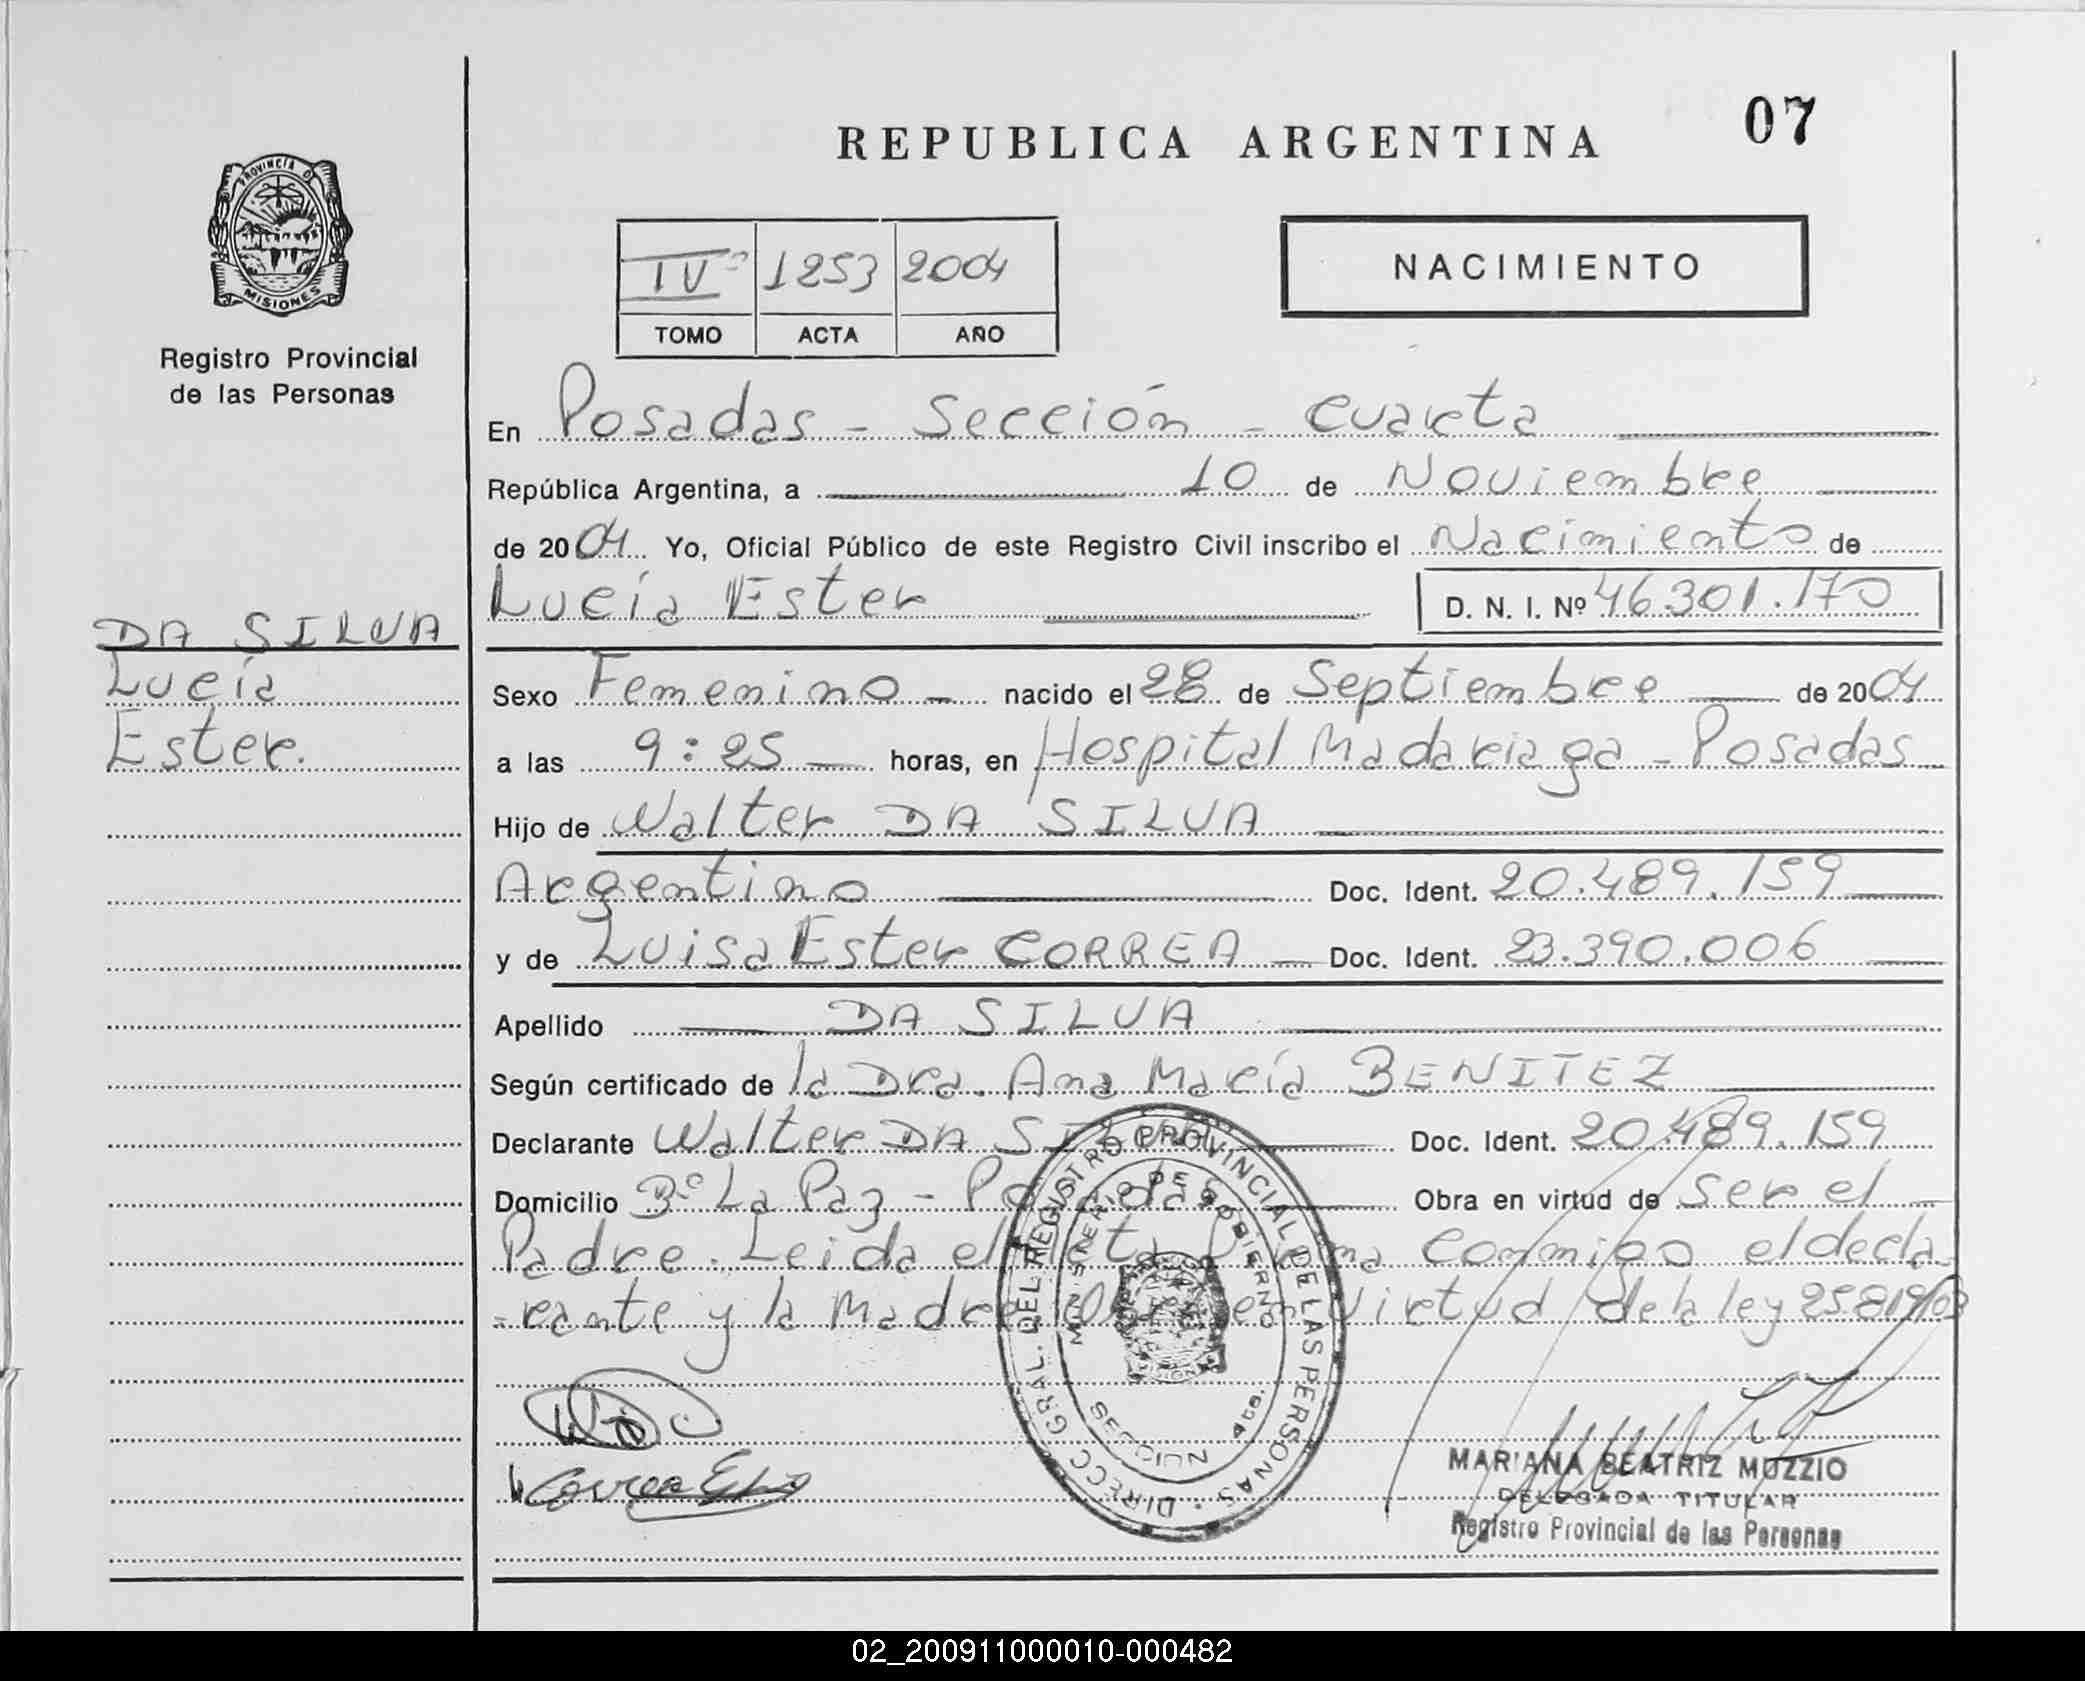 PROVINCIA DE
MISIONES
Registro Provincial
de las Personas
DA SILVA
Lucía
Ester.
REPUBLICA ARGENTINA
07
IV° 1253 2004
TOMO ACTA AÑO
NACIMIENTO
En Posadas - Sección - Cuarta
República Argentina, a 10 de Noviembre
de 2004 Yo, Oficial Público de este Registro Civil inscribo el Nacimiento de
Lucía Ester D. N. I. Nº 46.301.170
Sexo Femenino nacido el 28 de Septiembre de 2004
a las 9:25 horas, en Hospital Madariaga - Posadas
Hijo de Walter DA SILVA
Argentino Doc. Ident. 20.489.159
y de Luisa Ester CORREA Doc. Ident. 23.390.006
Apellido DA SILVA
Según certificado de la Dra. Ana María BENITEZ
Declarante Walter DA SILVA Doc. Ident. 20.489.159
Domicilio Bº La Paz - Posadas Obra en virtud de ser el
Padre. Leida el acta firma conmigo el decla-
rante y la Madre en virtud de la ley 25.819/03
DIRECC. GRAL. DEL REGISTRO PROVINCIAL DE LAS PERSONAS
MINISTERIO DE GOBIERNO
SECCION 4ta.
Correa
MARIANA BEATRIZ MUZZIO
DELEGADA TITULAR
Registro Provincial de las Personas
02_200911000010-000482